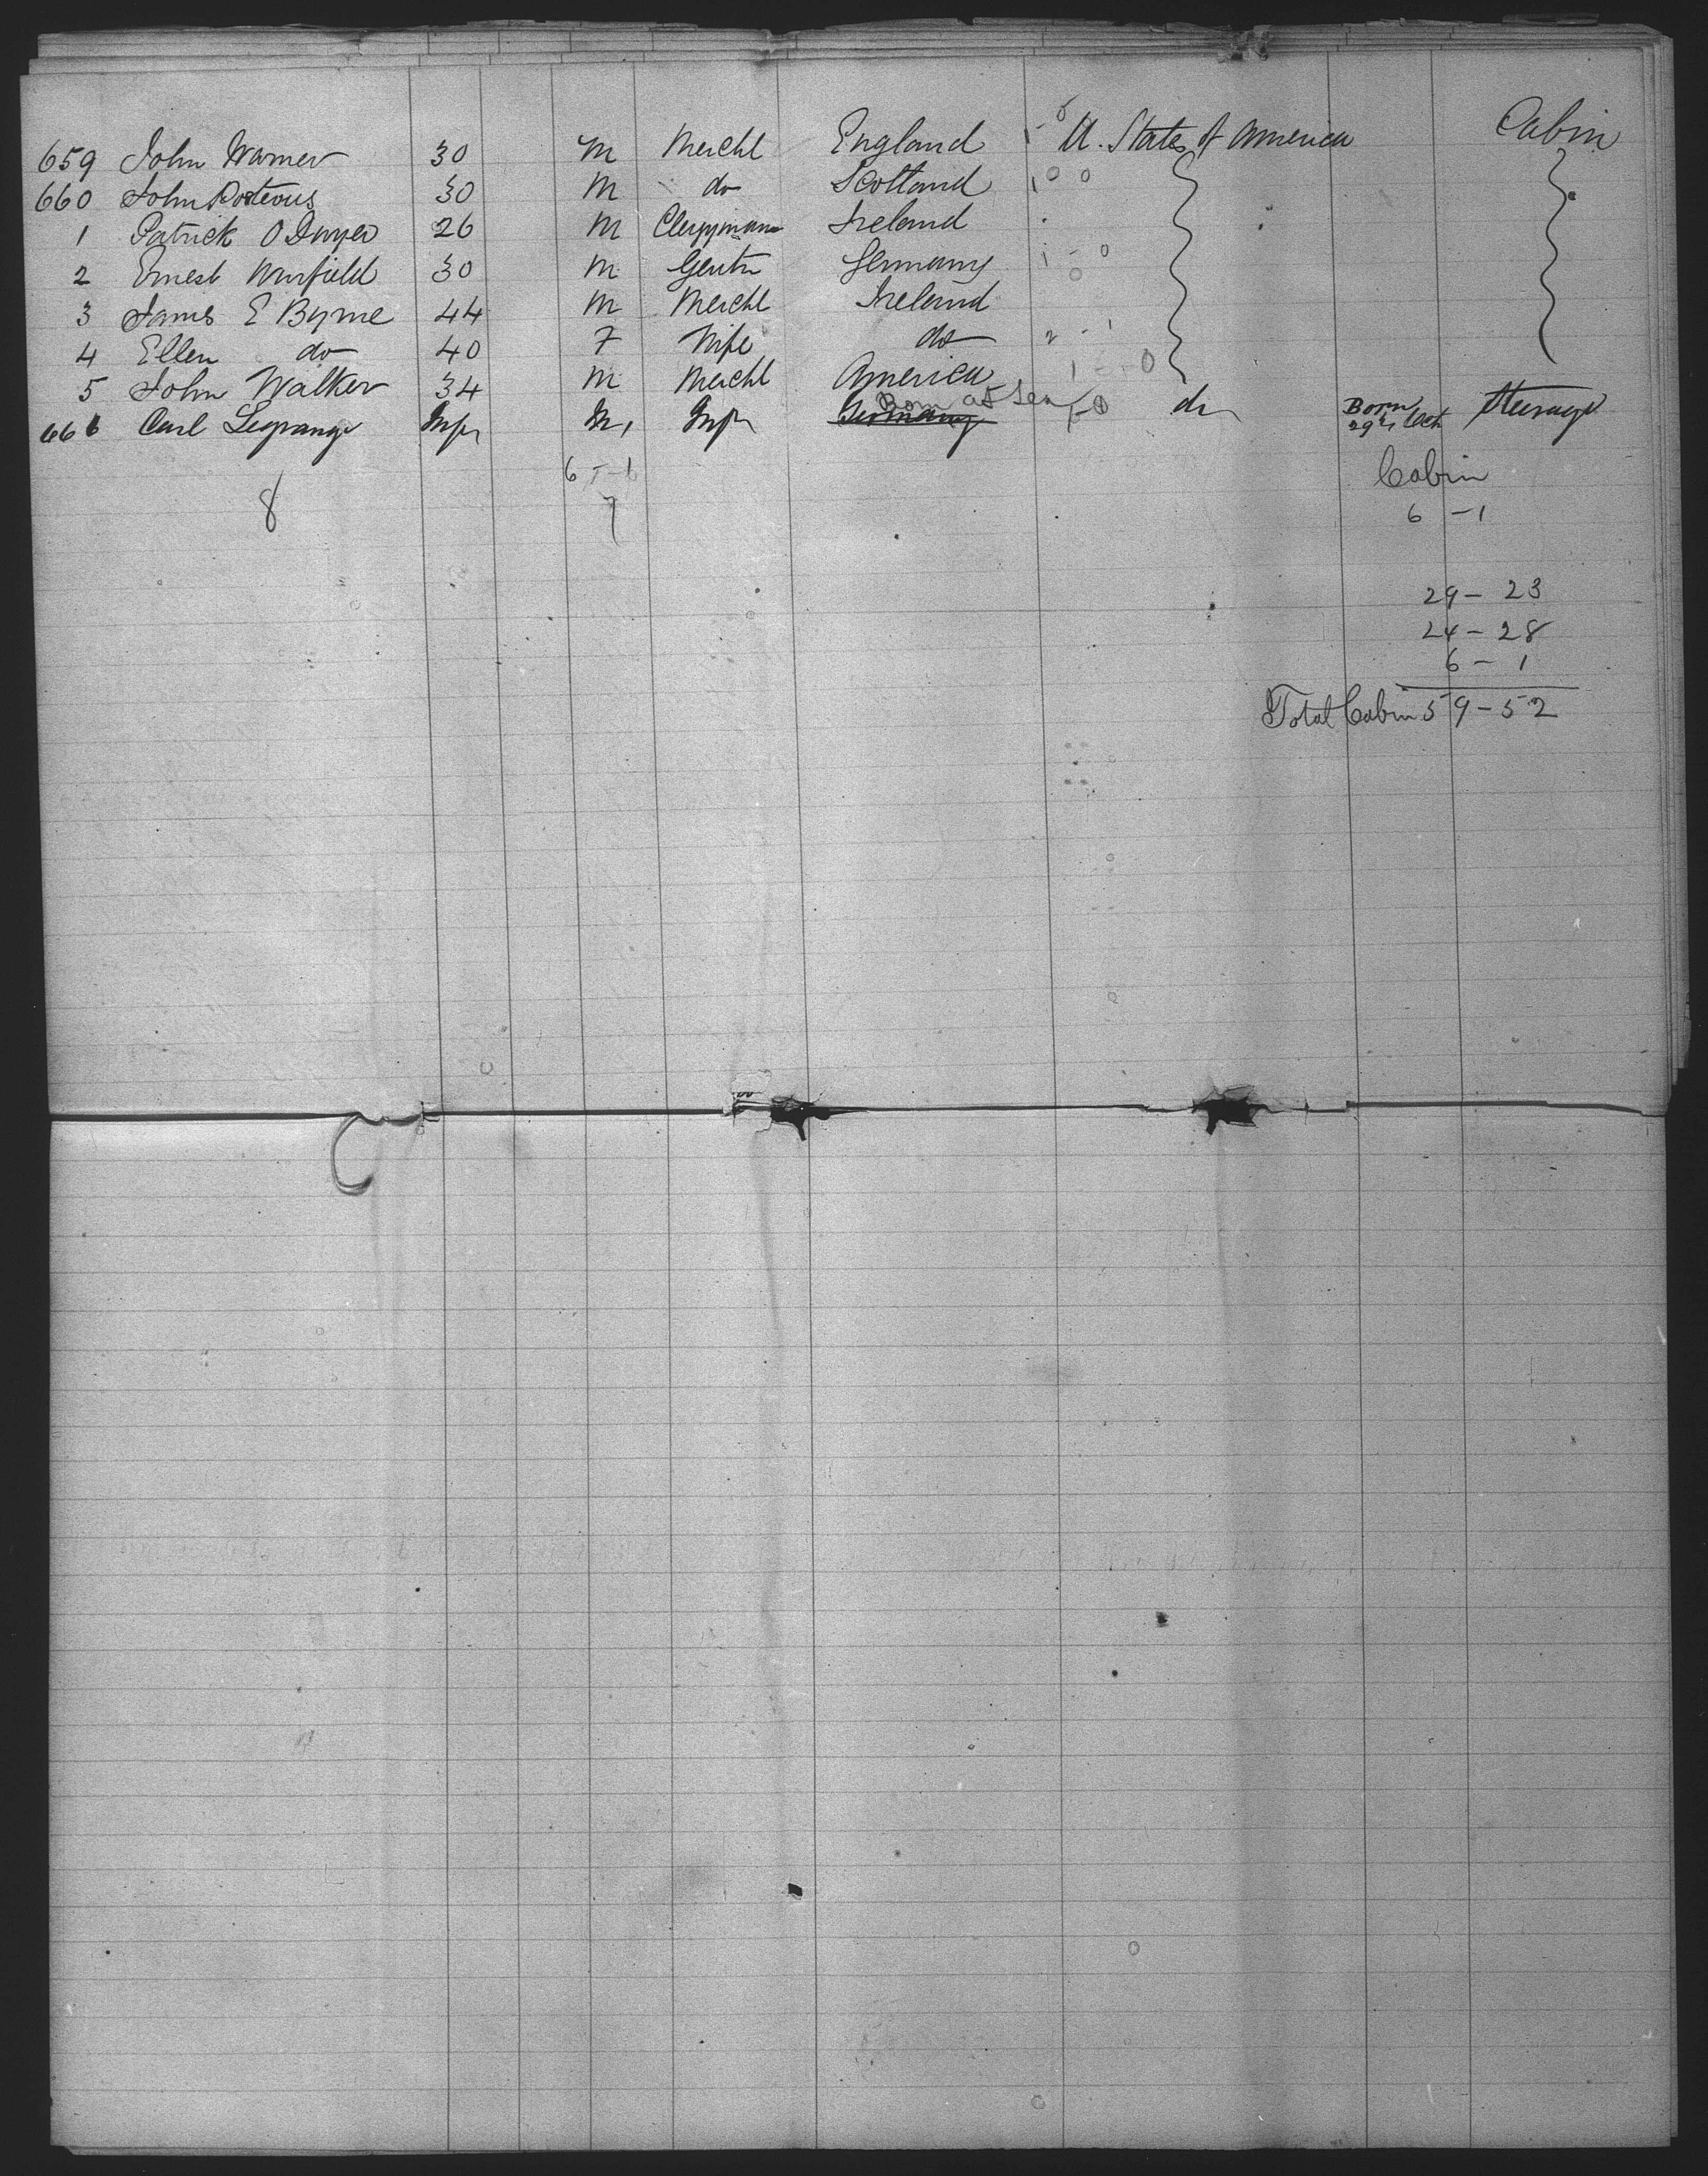 659 John Warner 30 M Mercht England 1-0 U. States of America Cabin
660 John Porteous 30 M do Scotland 1 0 0
1 Patrick O Dwyer 26 M Clergyman Ireland
2 Ernest Warfield 30 M Gentn Germany 1-0
3 James E Byrne 44 M Mercht Ireland
4 Ellen do 40 F Wife do 2-1
5 John Walker 34 M Mercht America 1-0
Born at Sea
666 Carl Legrange Inft M Inft Germany 1-0 do Born 29th Oct Steerage
6-1 Cabin
8 7 6-1
29-23
24-28
6-1
Total Cabin 59-52